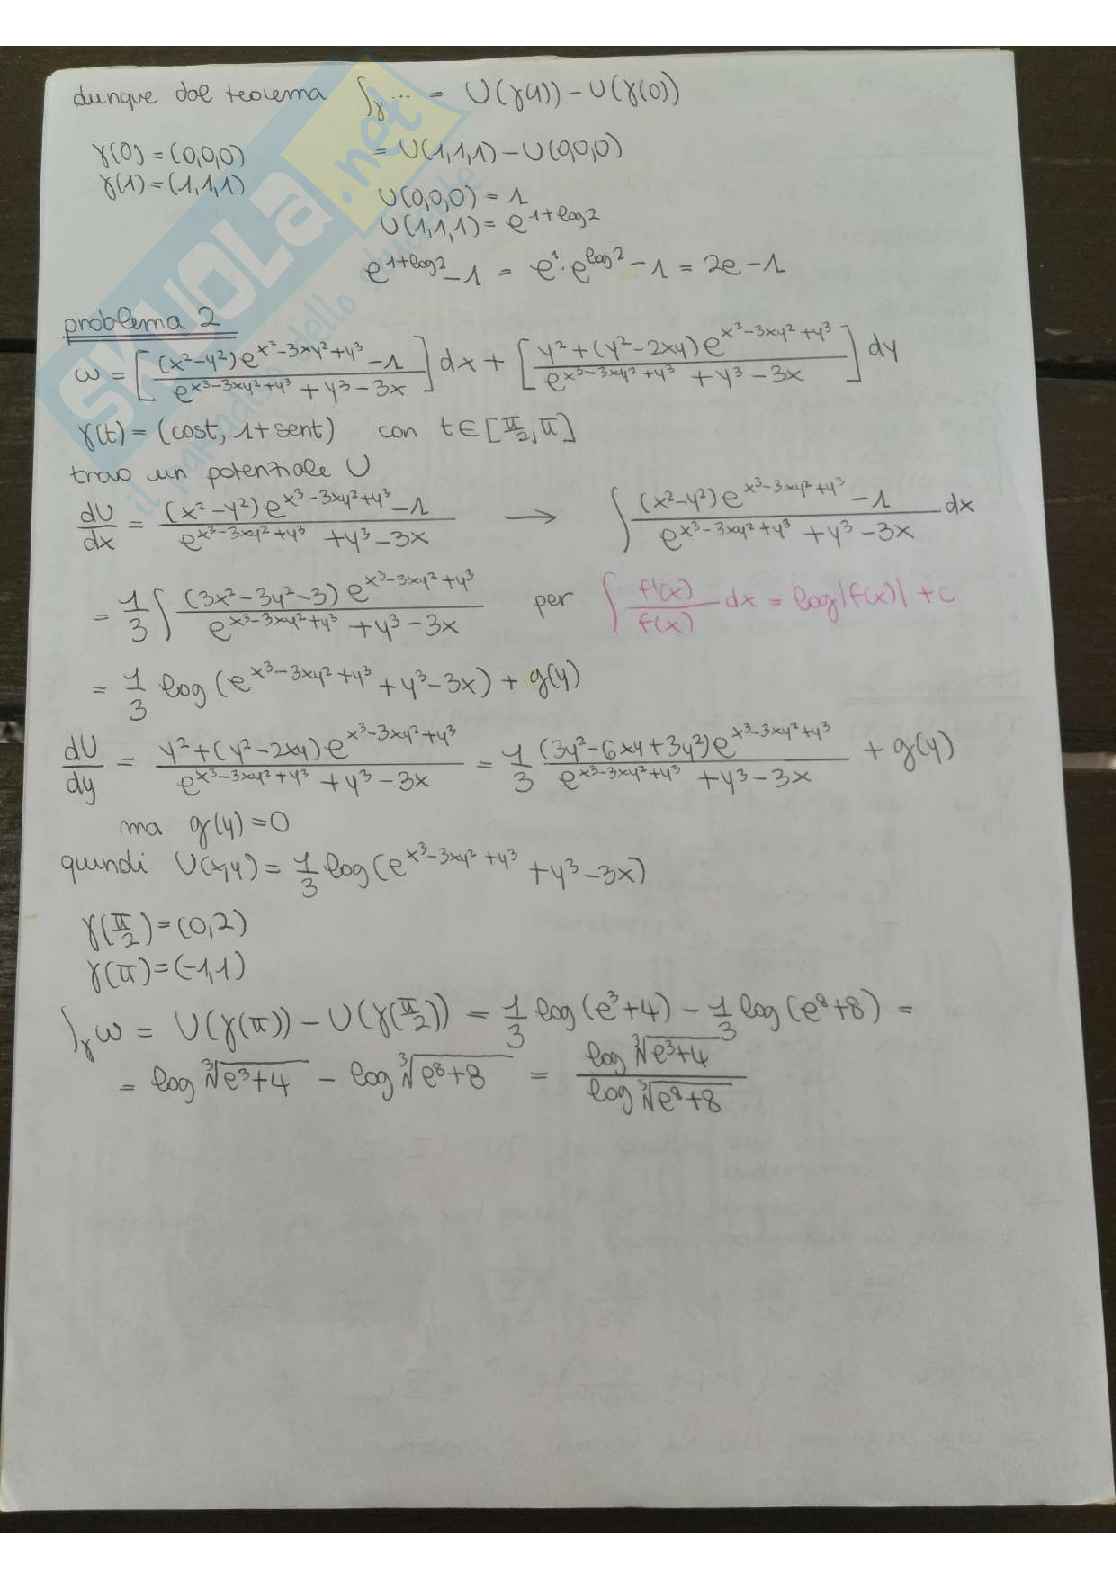 dunque dal teorema ∫γ ... = U(γ(1)) - U(γ(0))
γ(0) = (0,0,0) = U(1,1,1) - U(0,0,0)
γ(1) = (1,1,1)
U(0,0,0) = 1
U(1,1,1) = e^{1+log2}
e^{1+log2} - 1 = e^1 · e^{log2} - 1 = 2e - 1
problema 2
ω = [((x²-y²)e^{x³-3xy²+y³} - 1)/(e^{x³-3xy²+y³} + y³ - 3x)] dx + [(y² + (y²-2xy)e^{x³-3xy²+y³})/(e^{x³-3xy²+y³} + y³ - 3x)] dy
γ(t) = (cost, 1+sent) con t∈[π/2, π]
trovo un potenziale U
dU/dx = ((x²-y²)e^{x³-3xy²+y³} - 1)/(e^{x³-3xy²+y³} + y³ - 3x) → ∫ ((x²-y²)e^{x³-3xy²+y³} - 1)/(e^{x³-3xy²+y³} + y³ - 3x) dx
= 1/3 ∫ ((3x²-3y²-3)e^{x³-3xy²+y³})/(e^{x³-3xy²+y³} + y³ - 3x) per ∫ f'(x)/f(x) dx = log|f(x)| + c
= 1/3 log(e^{x³-3xy²+y³} + y³ - 3x) + g(y)
dU/dy = (y² + (y²-2xy)e^{x³-3xy²+y³})/(e^{x³-3xy²+y³} + y³ - 3x) = 1/3 ((3y²-6xy+3y²)e^{x³-3xy²+y³})/(e^{x³-3xy²+y³} + y³ - 3x) + g(y)
ma g(y) = 0
quindi U(x,y) = 1/3 log(e^{x³-3xy²+y³} + y³ - 3x)
γ(π/2) = (0,2)
γ(π) = (-1,1)
∫γ ω = U(γ(π)) - U(γ(π/2)) = 1/3 log(e³+4) - 1/3 log(e⁸+8) =
= log ∛(e³+4) - log ∛(e⁸+8) = (log ∛(e³+4))/(log ∛(e⁸+8))
SKUOLA.net